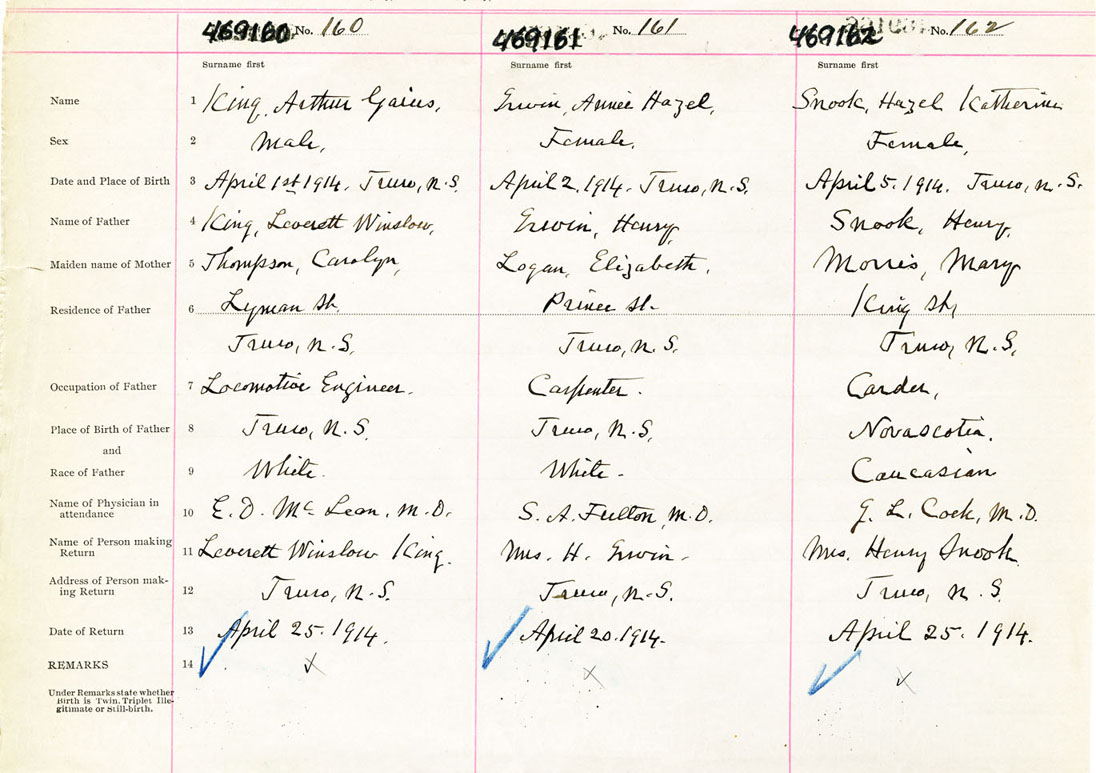 469160 No. 160 469161 No. 161 469162 No. 162
Surname first Surname first Surname first
Name 1 King, Arthur Gaius, Erwin, Annie Hazel, Snook, Hazel Katherine
Sex 2 Male, Female, Female,
Date and Place of Birth 3 April 1st 1914. Truro, N.S. April 2. 1914. Truro, N.S. April 5. 1914. Truro, N.S.
Name of Father 4 King, Leverett Winslow, Erwin, Henry, Snook, Henry,
Maiden name of Mother 5 Thompson, Carolyn, Logan, Elizabeth, Morris, Mary
Residence of Father 6 Lyman St. Prince St. King St,
Truro, N.S. Truro, N.S. Truro, N.S.
Occupation of Father 7 Locomotive Engineer. Carpenter. Carder,
Place of Birth of Father 8 Truro, N.S. Truro, N.S. Novascotia.
and
Race of Father 9 White. White. Caucasian
Name of Physician in
attendance 10 E. D. McLean, M.D. S. A. Fulton, M.D. G. L. Cock, M.D.
Name of Person making
Return 11 Leverett Winslow King. Mrs. H. Erwin. Mrs. Henry Snook.
Address of Person mak-
ing Return 12 Truro, N.S. Truro, N.S. Truro, N.S.
Date of Return 13 April 25. 1914. April 20. 1914. April 25. 1914.
REMARKS 14 x x x
Under Remarks state whether
Birth is Twin, Triplet Ille-
gitimate or Still-birth.